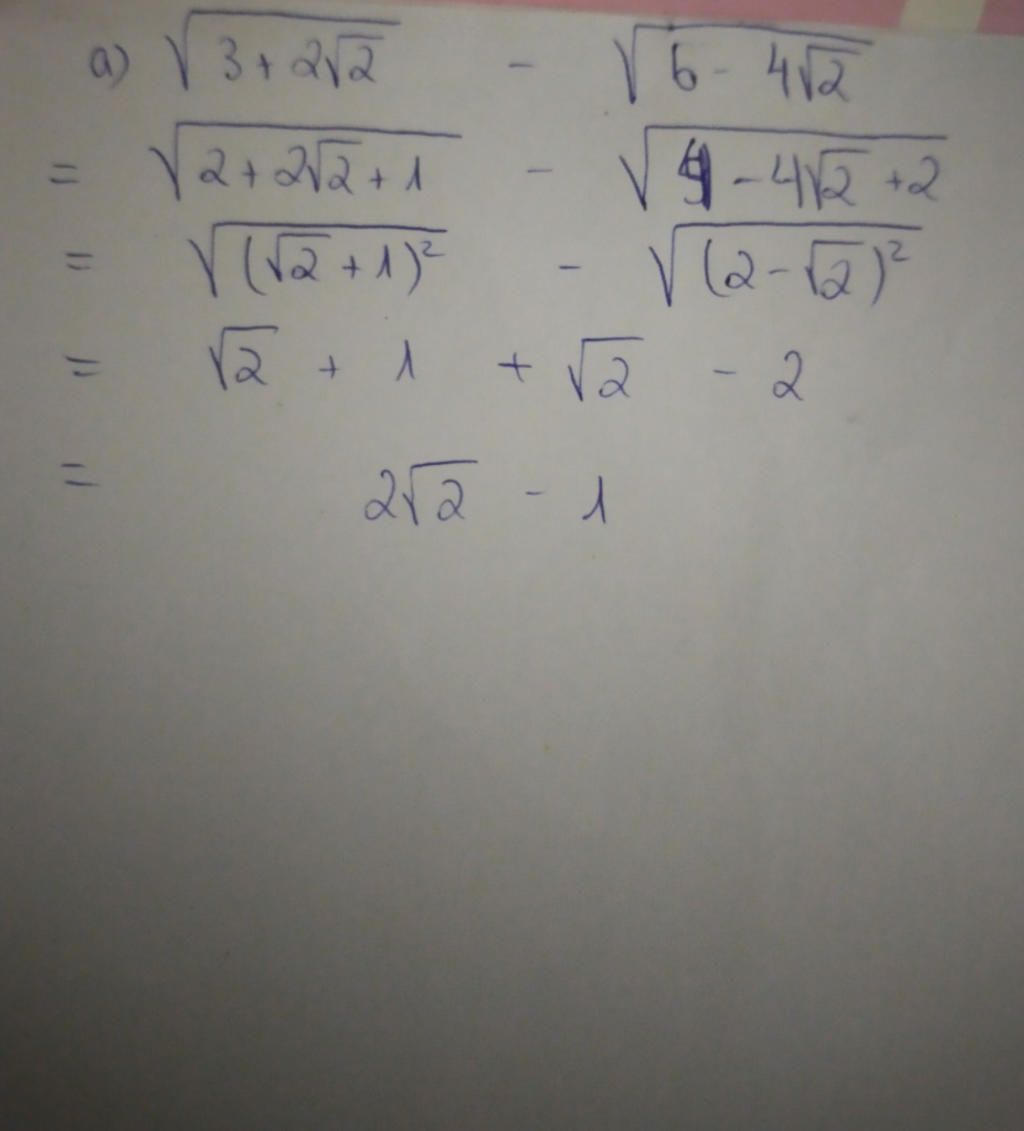 a) √(3 + 2√2) - √(6 - 4√2)
= √(2 + 2√2 + 1) - √(4 - 4√2 + 2)
= √((√2 + 1)²) - √((2 - √2)²)
= √2 + 1 + √2 - 2
= 2√2 - 1